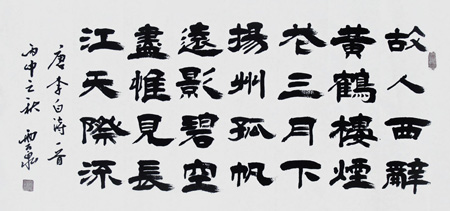 故人西辭
黃鶴樓煙
花三月下
揚州孤帆
遠影碧空
盡惟見長
江天際流
唐李白詩一首
丙申之秋